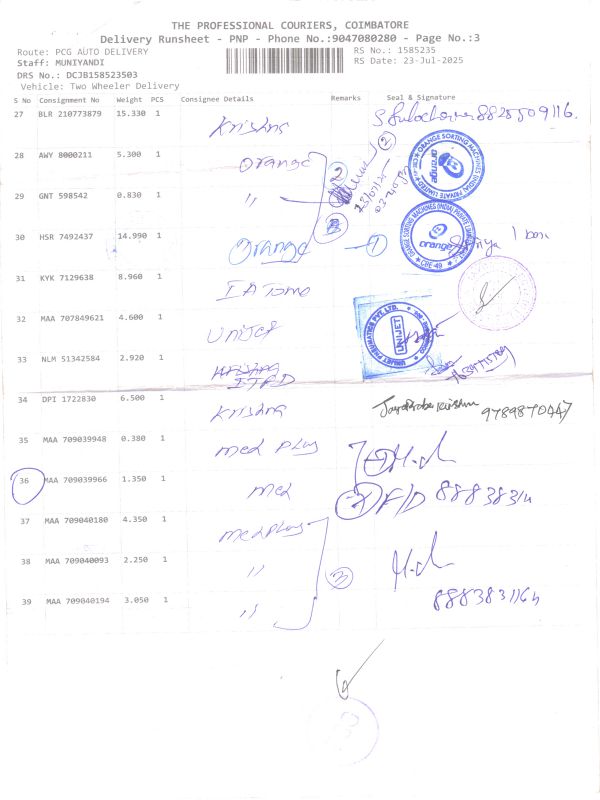 THE PROFESSIONAL COURIERS, COIMBATORE
Delivery Runsheet - PNP - Phone No.:9047080280 - Page No.:3
Route: PCG AUTO DELIVERY
RS No.: 1585235
Staff: MUNIYANDI
RS Date: 23-Jul-2025
DRS No.: DCJB158523503
Vehicle: Two Wheeler Delivery
S No Consignment No Weight PCS Consignee Details Remarks Seal & Signature
27 BLR 210773879 15.330 1 Krishna
28 AWY 8000211 5.300 1 Orange 2
ORANGE SORTING MACHINES (INDIA) PRIVATE LIMITED
orange
29 GNT 598542 0.830 1 "
30 HSR 7492437 14.990 1 Orange 1 1 box
ORANGE SORTING MACHINES (INDIA) PRIVATE LIMITED
orange
CBE-49
31 KYK 7129638 8.960 1
32 MAA 707849621 4.600 1 Unijet
UNIJET PNEUMATICS PVT. LTD.
UNIJET
33 NLM 51342584 2.920 1
34 DPI 1722830 6.500 1 Krishna
35 MAA 709039948 0.380 1 med play
36 MAA 709039966 1.350 1 med F/D
37 MAA 709040180 4.350 1 medplay
38 MAA 709040093 2.250 1 " 3
39 MAA 709040194 3.050 1 "